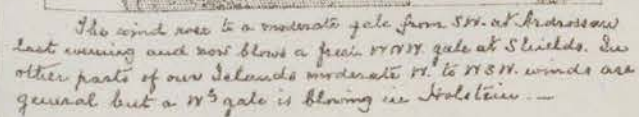 The wind rose to a moderate gale from SW. at Ardrossan
last evening and now blows a fresh WNW. gale at Shields. In
other parts of our Islands moderate Wd to WSW. winds are
general but a Wd gale is blowing in Holstein. —